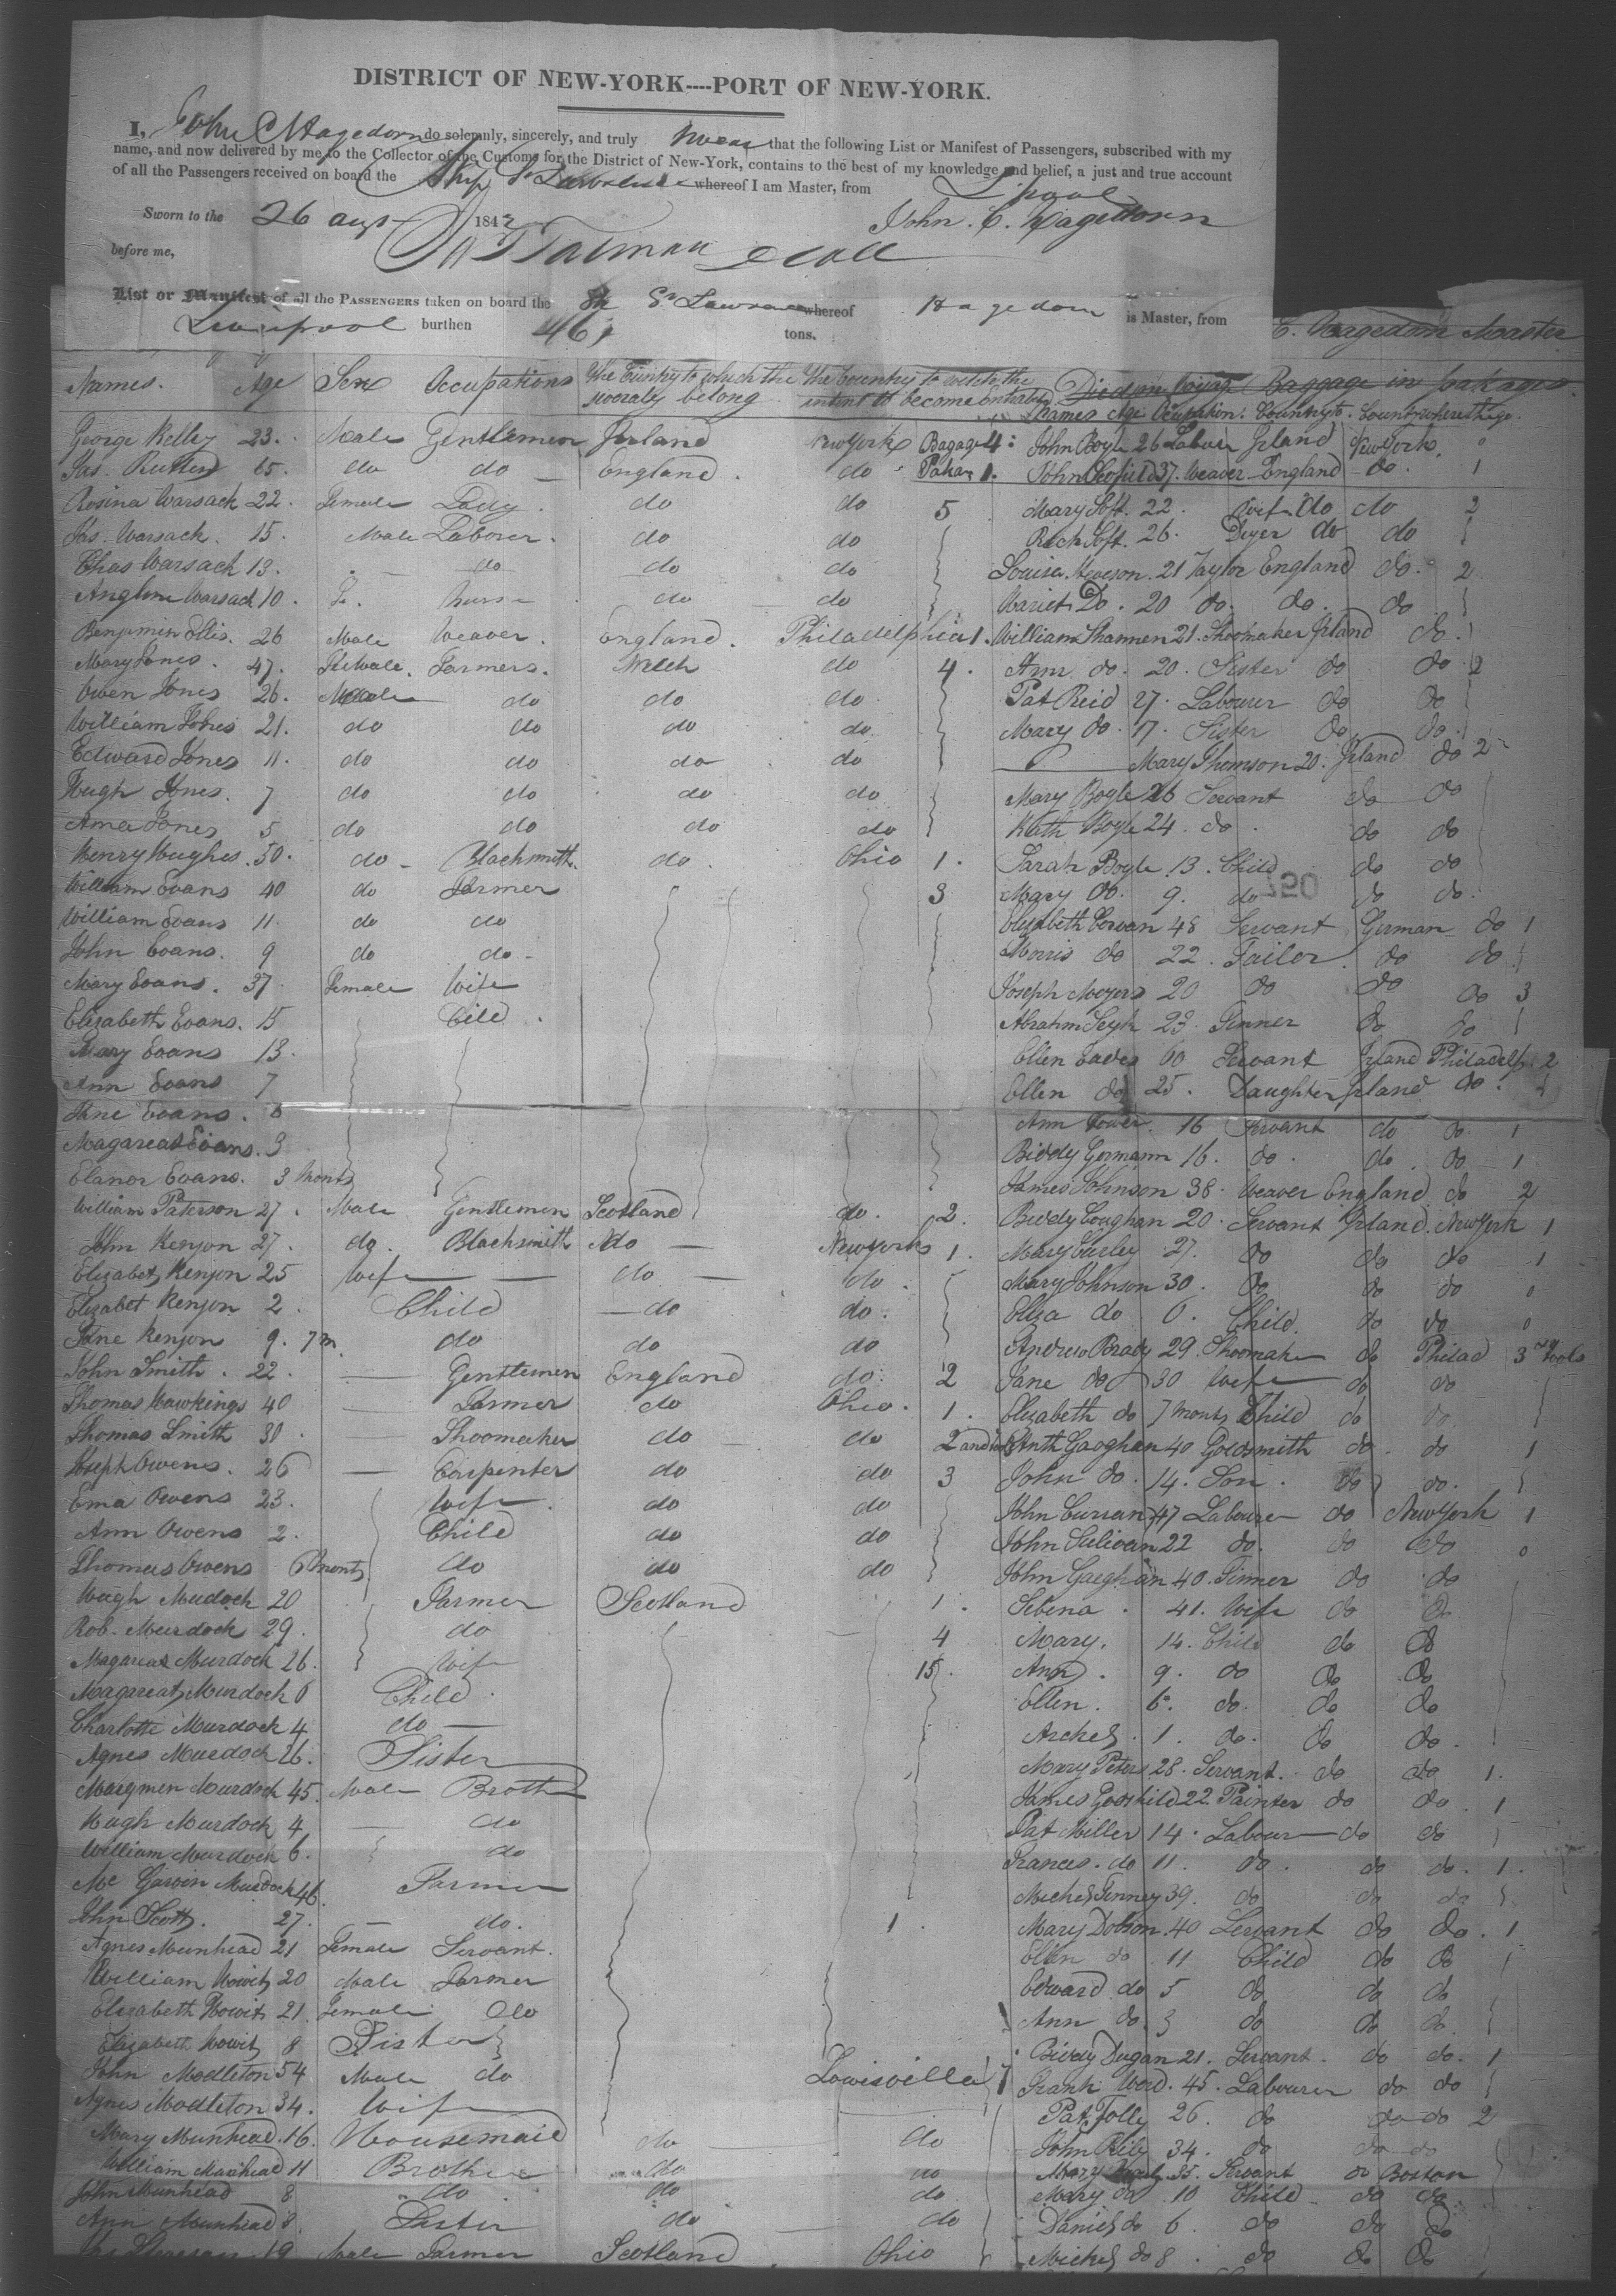 DISTRICT OF NEW-YORK----PORT OF NEW-YORK.
I, John C Hagedorn do solemnly, sincerely, and truly swear that the following List or Manifest of Passengers, subscribed with my
name, and now delivered by me to the Collector of the Customs for the District of New-York, contains to the best of my knowledge and belief, a just and true account
of all the Passengers received on board the Ship St Lawrence whereof I am Master, from L'pool
Sworn to the 26 augt 1842 John. C. Hagedorn
before me,
List or Manifest of all the PASSENGERS taken on board the Sh St Lawrence whereof Hagedorn is Master, from
Liverpool burthen 461 tons. C. Hagedorn Master
Names. Age Sex Occupations The Country to which the severaly belong The Country to which the intent to become inhabitants Died on Voyage Baggage in pakages
Names Age Ocupation. Countryto. Country where they go.
George Kelley 23. Male Gentlemen Irland New York Bagage 4 John Boyle 26 Labour Irland New York. 0
Jas. 15. do do England. do Pakag 1. John 37. Weaver England do. 1
Rosina Warsack 22. Female Lady. do do 5 Mary Soft. 22. Wif do do 2
Jas. Warsack. 15. Male Laborer. do do Rich Soft. 26. Dyer do do
Chas Warsack 13. do do do Louisa 21 Taylor England do. 2
Warsack 10. F. do do Do. 20 do. do. do
Benjamin Ellis. 26 Male Weaver. England. Philadelphia 1. William Shannen 21. Shoomaker Irland do.
Mary Jones. 47. Female. Farmers. Welch do 4. Ann do. 20. Sister do do 2
Owen Jones 26. Male do do do. Pat Reid 27. Labourer do do
William Jones 21. do do do do. Mary do. 17. Sister do. do.
Edward Jones 11. do do do do Mary Thomson 20. Irland do 2
Hugh Jones. 7 do do do do Mary Boyle 26 Servant do do
Jones 5 do do do do Kath Boyle 24. do. do do
Henry Hughes. 50. do Blacksmith do. Ohio 1. Sarah Boyle. 13. Child do do
William Evans 40 do Farmer 3 Mary do. 9. do do do.
William Evans 11. do do Elizabeth 48 Servant German do 1
John Evans. 9 do do Morris do 22. Tailor. do do
Mary Evans. 37. Female Wife Joseph Meyers 20 do do do 3
Elizabeth Evans. 15 Cild. Abraham 23. Tinner do do
Mary Evans 13. Ellen Eades 60 Servant Irland Philadelp. 2
Ann Evans 7 Ellen do 25. Daughter Irland do.
Jane Evans. 6 Ann 16 Servant do do 1
Magareat Evans. 3 Biddy Germann 16. do. do. do 1
Elanor Evans. 3 Monts James Johnson 38. Weaver England do 2
William Paterson 27. Male Gentlemen Scotland do. 2. Biddy Coughan 20. Servant Irland. New York 1
John Kenyon 27. do. Blacksmith do New York 1. Mary Curley 27. do do do 1
Elizabet Kenyon 25 Wife do do. Mary Johnson 30. do do do 0
Elizabet Kenyon 2. Child do do. Eliza do 6. Child. do do 0
Jane Kenyon 9. 7 m. do do do Andrew Brady 29. Shoomaker do Philad 3
John Smith. 22. Gentlemen England do. 2 Jane do 30 Wife do do
Thomas Hawkings 40 Farmer do Ohio. 1. Elizabeth do 7 monts Child do do
Thomas Smith 30. Shoomaker do do 2 Anth Gaoghan 40 Goldsmith do. do 1
Joseph Owens. 26 Carpenter do do 3 John do. 14. Son. do do.
Ema Owens 23. Wife. do do John Curran 47 Labourer do New York 1
Ann Owens 2. Child do do John Sulivan 22 do. do do 0
Thomas Owens 6 monts do do do John Gaeghan 40. Tinner do do
Hugh Mudock 20 Farmer Scotland 1. Sebena. 41. Wife do do
Rob. Murdock 29. do 4 Mary. 14. Child do do
Magareat Murdock 26. Wife 15. Ann. 9. do do do
Magareat Murdock 6 Child. Ellen. 6. do. do do
Charlotte Murdock 4 do Archel. 1. do. do do.
Agnes Murdock 26. Sister Mary Peters 28. Servant. do do 1.
Murdock 45. Male Broth James 22 Painter do do. 1
Hugh Murdock 4 do Pat Miller 14. Labour do do
William Murdock 6. do Frances. do 11. do. do do. 1.
Mc Murdock 46. Farmer Michel 39. do do do
John Scott. 27. do. 1. Mary Dobson. 40 Servant do do. 1
Agnes Muirhead 21 Female Servant. Ellen do 11 Child do do 1
William Howit 20 Male Farmer Edward do 5 do do do
Elizabeth Howit 21. Female do Ann do. 3 do do do.
Elizabeth Howit 8 Sister Biddy Dugan 21. Servant. do do. 1
John Modleton 54 Male do Lowisville 1 Frank Word. 45. Labourer do do
Agnes Modleton 34. Wife Pat. Jolly 26. do do do 2
Mary Muirhead. 16. Housemaid do do John Rily 34. do do do
William Muirhead 11 Brother do do Mary 35. Servant do Boston
John Muirhead 8 do do do Mary do 10 Child do do
Ann Muirhead 8. Sister do do Daniel do 6. do do do
19 Male Farmer Scotland Ohio Michel do 8. do do do